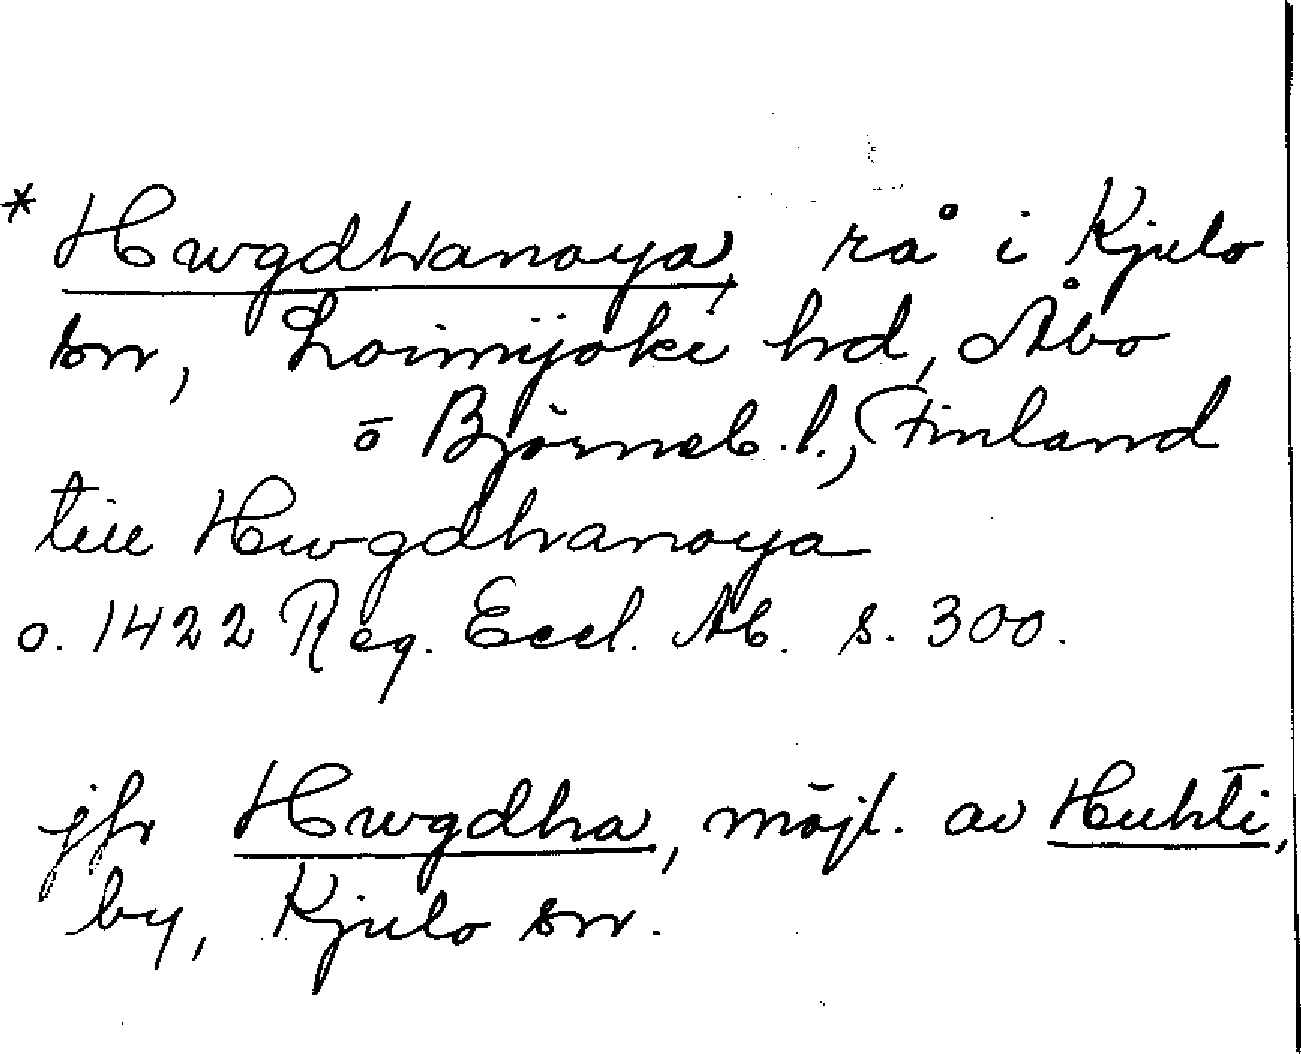 * Hwgdhanoya, rå i Kjulo
sn, Loimijoki hd, Åbo
o Björneb. l., Finland
till Hwgdhanoya
o. 1422 Reg. Eccl. Ab. s. 300.
jfr Hwgdha, möjl. av Huhti,
by, Kjulo sn.